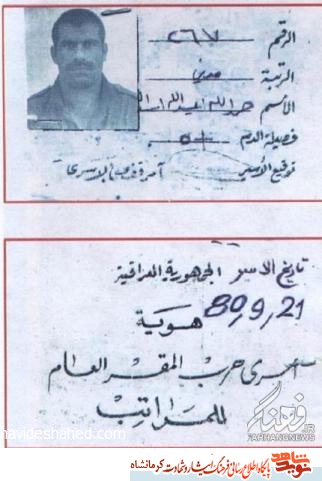 الرقم ٢٦٧
الرتبة مدني
الأسم حب الله عبدالله
فصيلة الدم O+
توقيع الأسير آمرية قفص الاسرى
تاريخ الاسر الجمهورية العراقية
80,9,21 هوية
اسرى حرب المقر العام
للمراتب
فرهنگ
FARHANGNEWS
navideshahed.com
نوید شاهد پایگاه اطلاع رسانی فرهنگ ایثار و شهادت کرمانشاه